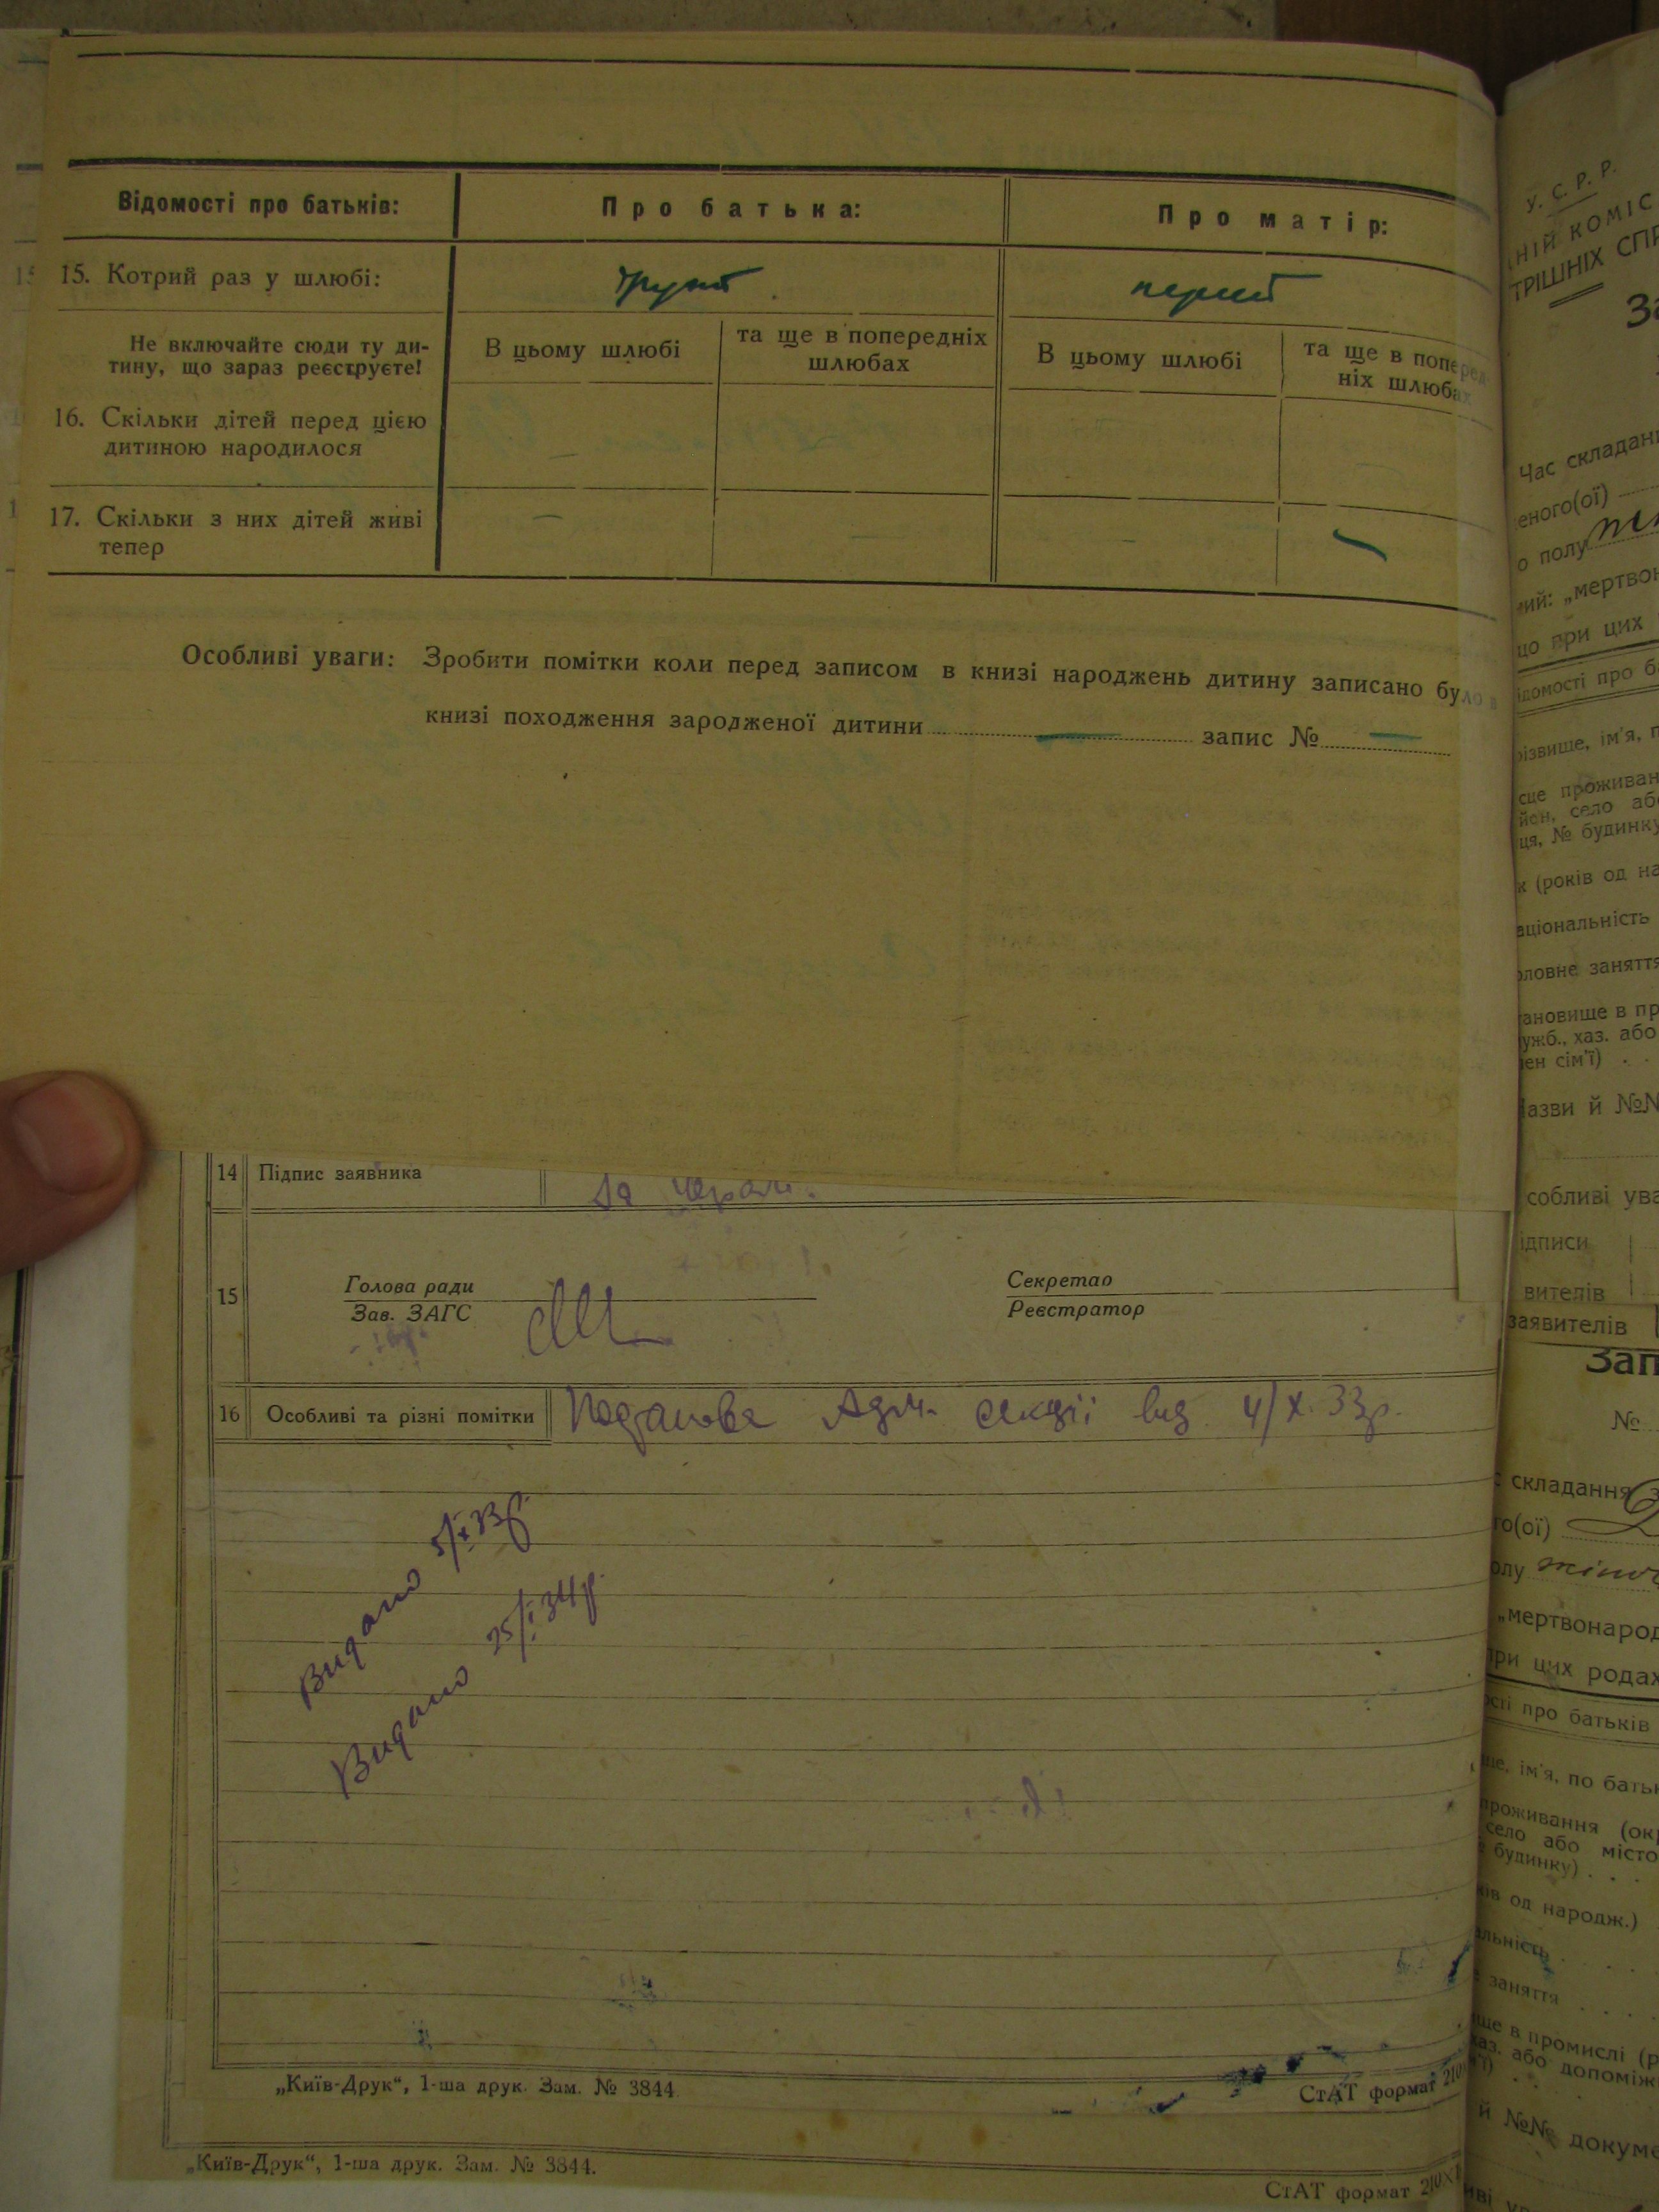 Відомості про батьків: Про батька: Про матір:
15. Котрий раз у шлюбі: первий
Не включайте сюди ту ди-
тину, що зараз реєструєте!
В цьому шлюбі
та ще в попередніх
шлюбах
В цьому шлюбі
та ще в поперед-
ніх шлюбах
16. Скільки дітей перед цією
дитиною народилося — —
17. Скільки з них дітей живі
тепер — — - —
Особливі уваги: Зробити помітки коли перед записом в книзі народжень дитину записано було в
книзі походження зародженої дитини — запис № —
14 Підпис заявника
15 Голова ради
Зав. ЗАГС
Секретар
Реєстратор
16 Особливі та різні помітки Адм. секції від 4/X. 33р.
Видано 5/X 33р
Видано 25/I 34р.
„Київ-Друк“, 1-ша друк. Зам. № 3844.
СтАТ формат 210
„Київ-Друк“, 1-ша друк. Зам. № 3844.
СтАТ формат 210×
У. С. Р. Р.
НІЙ КОМІС
ТРІШНІХ СПР
За
Час складан
еного(ої)
о полу
ий: „мертвон
що при цих
ідомості про б
різвище, ім'я, п
сце проживан
йон, село або
ця, № будинку
к (років од на
аціональність
оловне заняття
тановище в пр
ужб., хаз. або
лен сім'ї) . .
Назви й №№
собливі ува
ідписи
вителів
заявителів
Зап
№
складання з
го(ої)
олу
„мертвонарод
при цих родах
ості про батьків
ще, ім'я, по батьк
проживання (окр
село або місто
будинку) . . .
ків од народж.)
альність . . . .
заняття . . .
ще в промислі (р
хаз. або допоміж
й №№ докуме